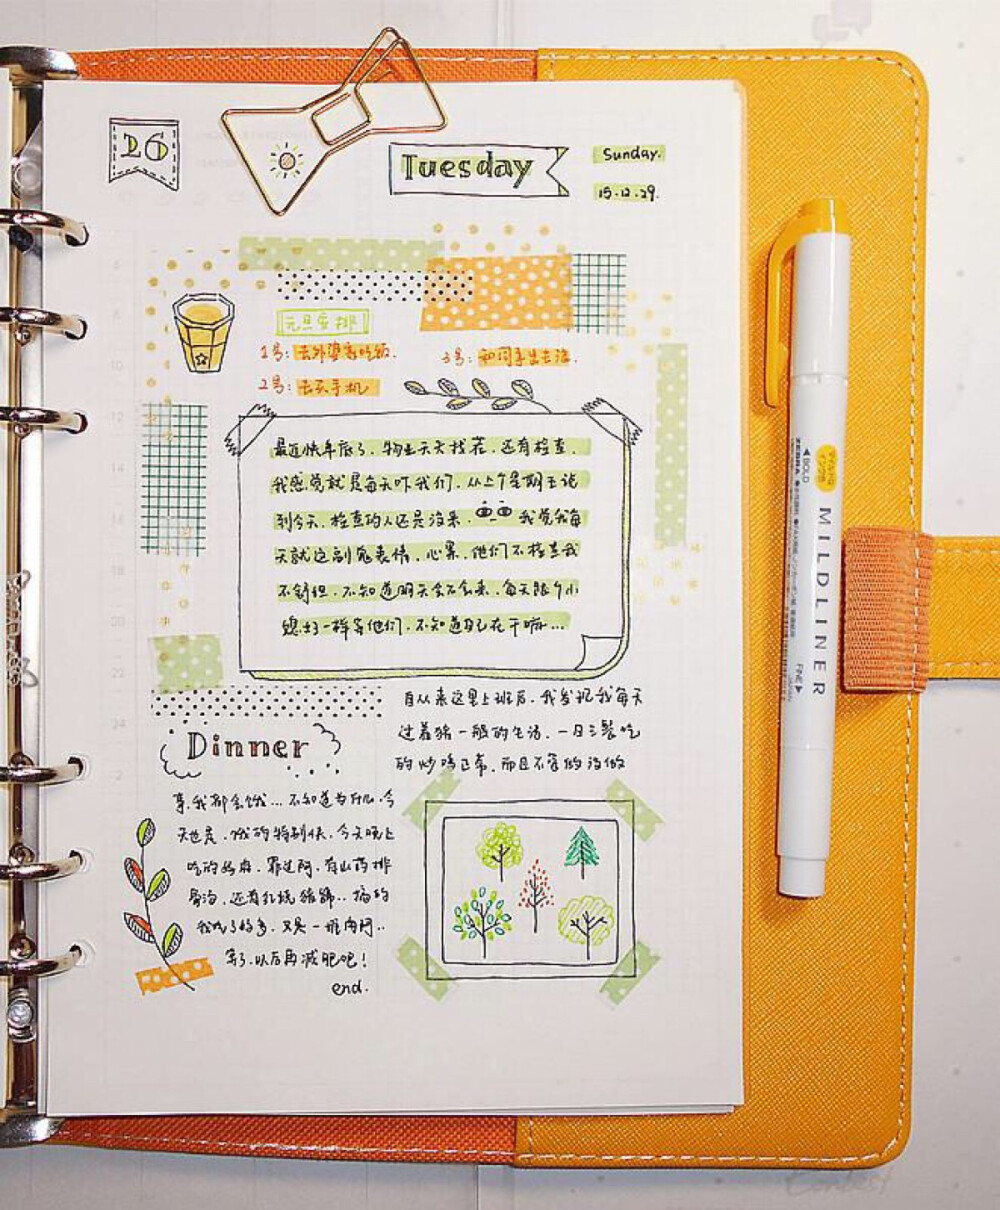 26
Tuesday
Sunday.
15.12.29.
元旦安排
1号：去外婆家吃饭.
3号：和同事出去浪.
2号：去买手机
最近快年底了，物业天天找茬，还有检查，
我感觉就是每天吓我们，从上个星期五说
到今天，检查的人还是没来. 我觉我每
天就这副鬼表情，心累，他们不检查我
不舒坦，不知道明天会不会来，每天跟个小
媳妇一样等他们，不知道自己在干嘛...
自从来这里上班后，我发现我每天
过着猪一般的生活，一日三餐吃
的炒鸡正常，而且不管的没做
Dinner
事，我都会饿...不知道为什么，今
天也是，饿的特别快，今天晚上
吃的好麻，罪过阿，有山药排
骨汤，还有红烧猪蹄..搞的
我吃了好多，又是一堆肉阿..
等了以后再减肥吧！
end.
マイルドな
インク色
MILDLINER
◀BOLD
ZEBRA
FINE▶
JAPAN
6
10
12
14
16
18
20
22
24
2